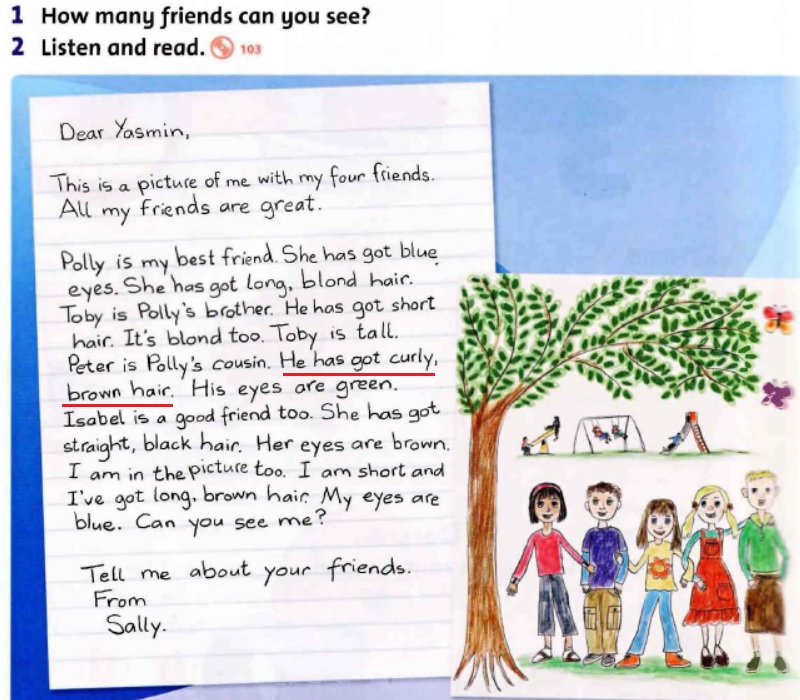 1 How many friends can you see?
2 Listen and read. 103
Dear Yasmin,
This is a picture of me with my four friends.
All my friends are great.
Polly is my best friend. She has got blue
eyes. She has got long, blond hair.
Toby is Polly's brother. He has got short
hair. It's blond too. Toby is tall.
Peter is Polly's cousin. He has got curly,
brown hair. His eyes are green.
Isabel is a good friend too. She has got
straight, black hair. Her eyes are brown.
I am in the picture too. I am short and
I've got long, brown hair. My eyes are
blue. Can you see me?
Tell me about your friends.
From
Sally.